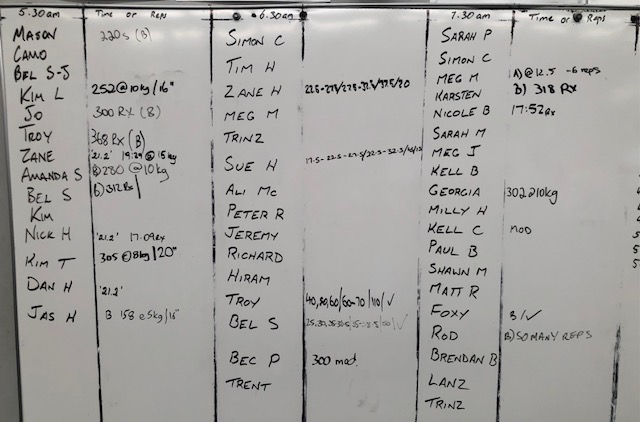 5.30am Time or Reps
Mason 220s (B)
Camo
Bel S-J
Kim L 252@10kg/16"
Jo 300 RX (B)
Troy 368 RX (B)
Zane '21.2' 19:29 @ 15kg
Amanda S B) 280 @10kg
Bel S B) 312 Rx
Kim
Nick H '21.2' 17:09 RX
Kim T 305 @ 8kg/20"
Dan H '21.2'
Jas H B 158 @ 5kg/16"
6.30am
Simon C
Tim H
Zane H
Meg M
Trinz
Sue H
Ali Mc
Peter R
Jeremy
Richard
Hiram
Troy 40,50,60/60-70/110/✓
Bel S
Bec P 300 mod.
Trent
7.30am Time or Reps
Sarah P
Simon C
Meg M A) @12.5 -6 reps
Karsten B) 318 Rx
Nicole B 17:52 Rx
Sarah M
Meg J
Kell B
Georgia 302@10kg
Milly H
Kell C mod
Paul B
Shawn M
Matt R
Foxy B/✓
Rod B) So many reps
Brendan B
Lanz
Trinz